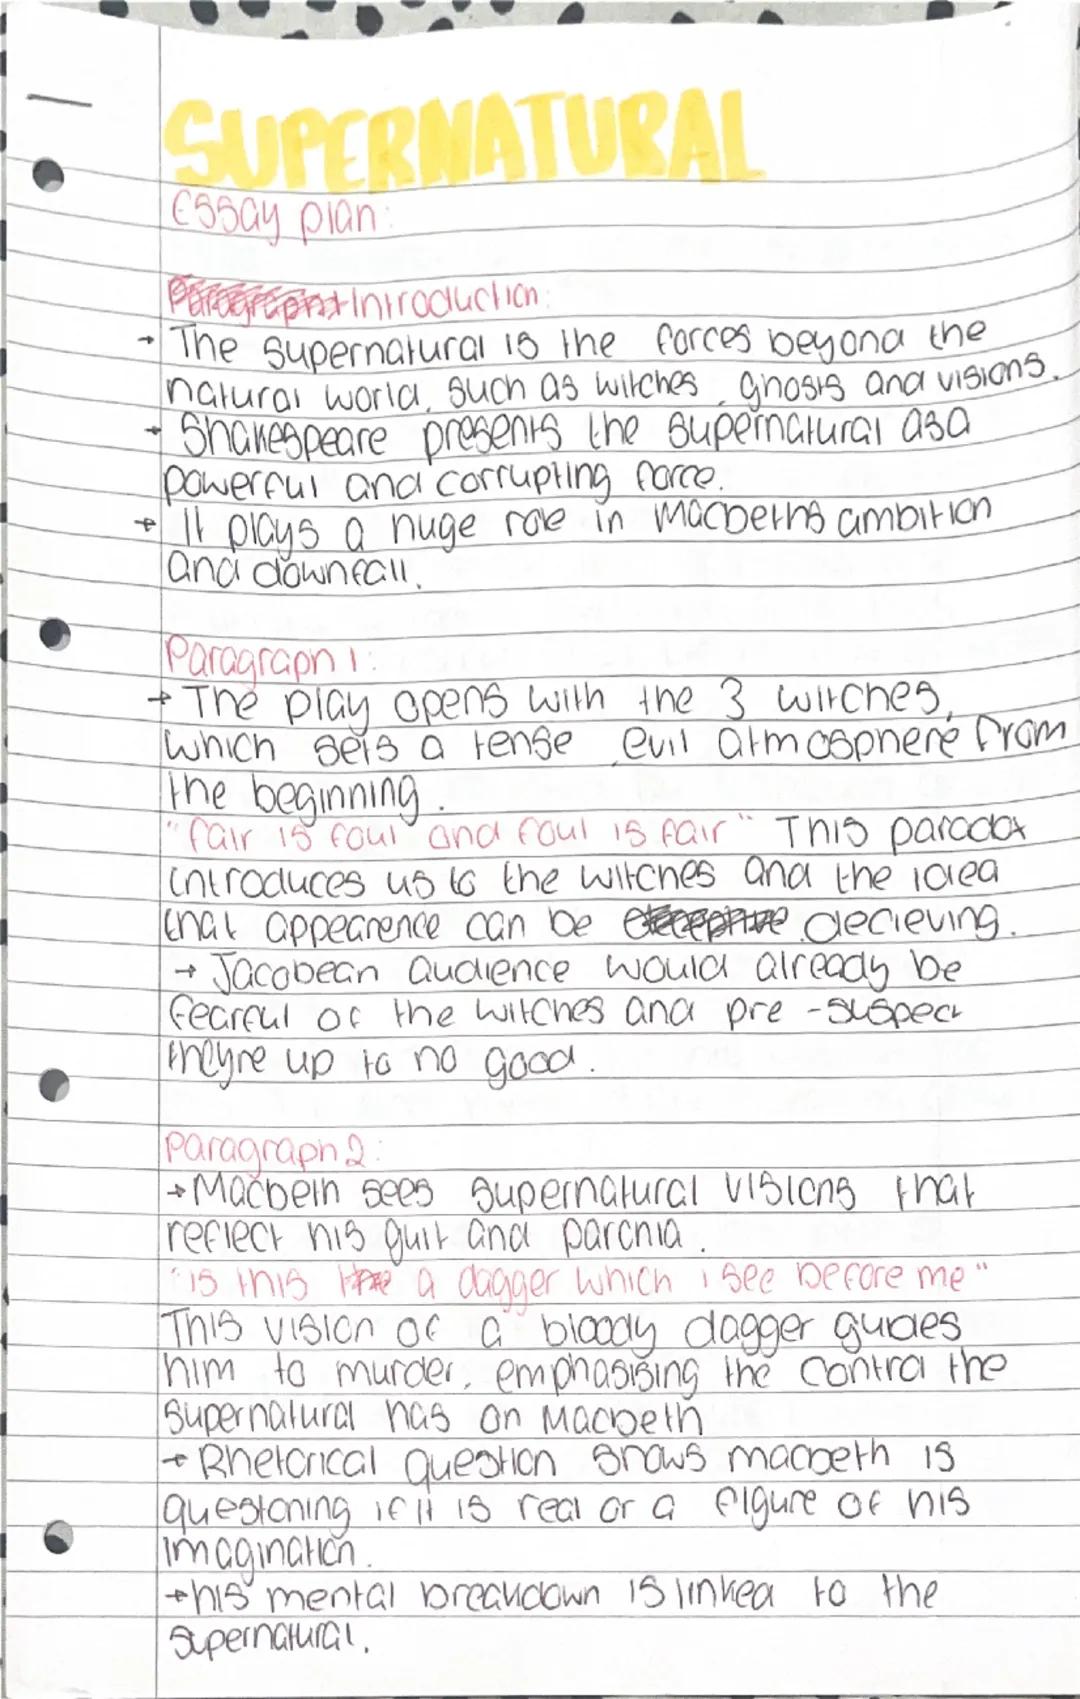 SUPERNATURAL
Essay plan:
Introduction:
→ The supernatural is the forces beyond the
natural world, such as witches, ghosts and visions.
→ Shakespeare presents the supernatural as a
powerful and corrupting force.
→ It plays a huge role in Macbeths ambition
and downfall.
Paragraph 1:
→ The play opens with the 3 witches,
which sets a tense, evil atmosphere from
the beginning.
"fair is foul and foul is fair" This paradox
introduces us to the witches and the idea
that appearence can be decieving.
→ Jacobean audience would already be
fearful of the witches and pre-suspect
theyre up to no good.
Paragraph 2:
→ Macbeth sees supernatural visions that
reflect his guit and parania.
"is this a dagger which i see before me"
This vision of a bloody dagger guides
him to murder, emphasising the control the
supernatural has on Macbeth
→ Rhetorical question shows macbeth is
questoning if it is real or a figure of his
imagination.
→ his mental breakdown is linked to the
supernatural.